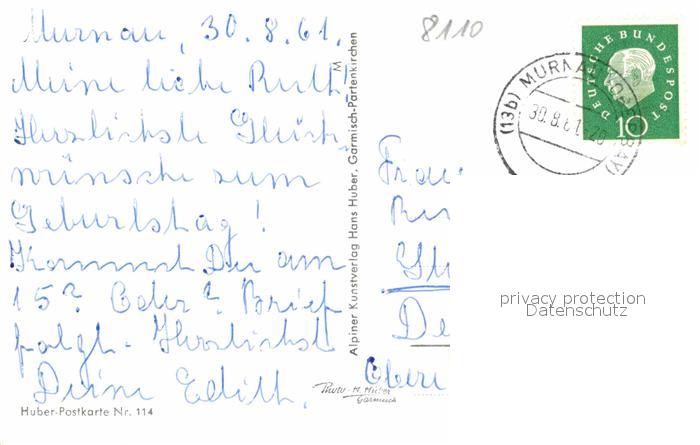 Murnau, 30.8.61.
Meine liebe Ruth!
Herzlichste Glück-
wünsche zum
Geburtstag!
Kommst Du am
15? Oder? Brief
folgt. Herzlichst
Deine Edith.
Huber-Postkarte Nr. 114
M
Alpiner Kunstverlag Hans Huber, Garmisch-Partenkirchen
Photo-H. Huber
Garmisch
8110
DEUTSCHE BUNDESPOST
10
(13b) MURNAU
30.8.61
Frau
privacy protection
Datenschutz